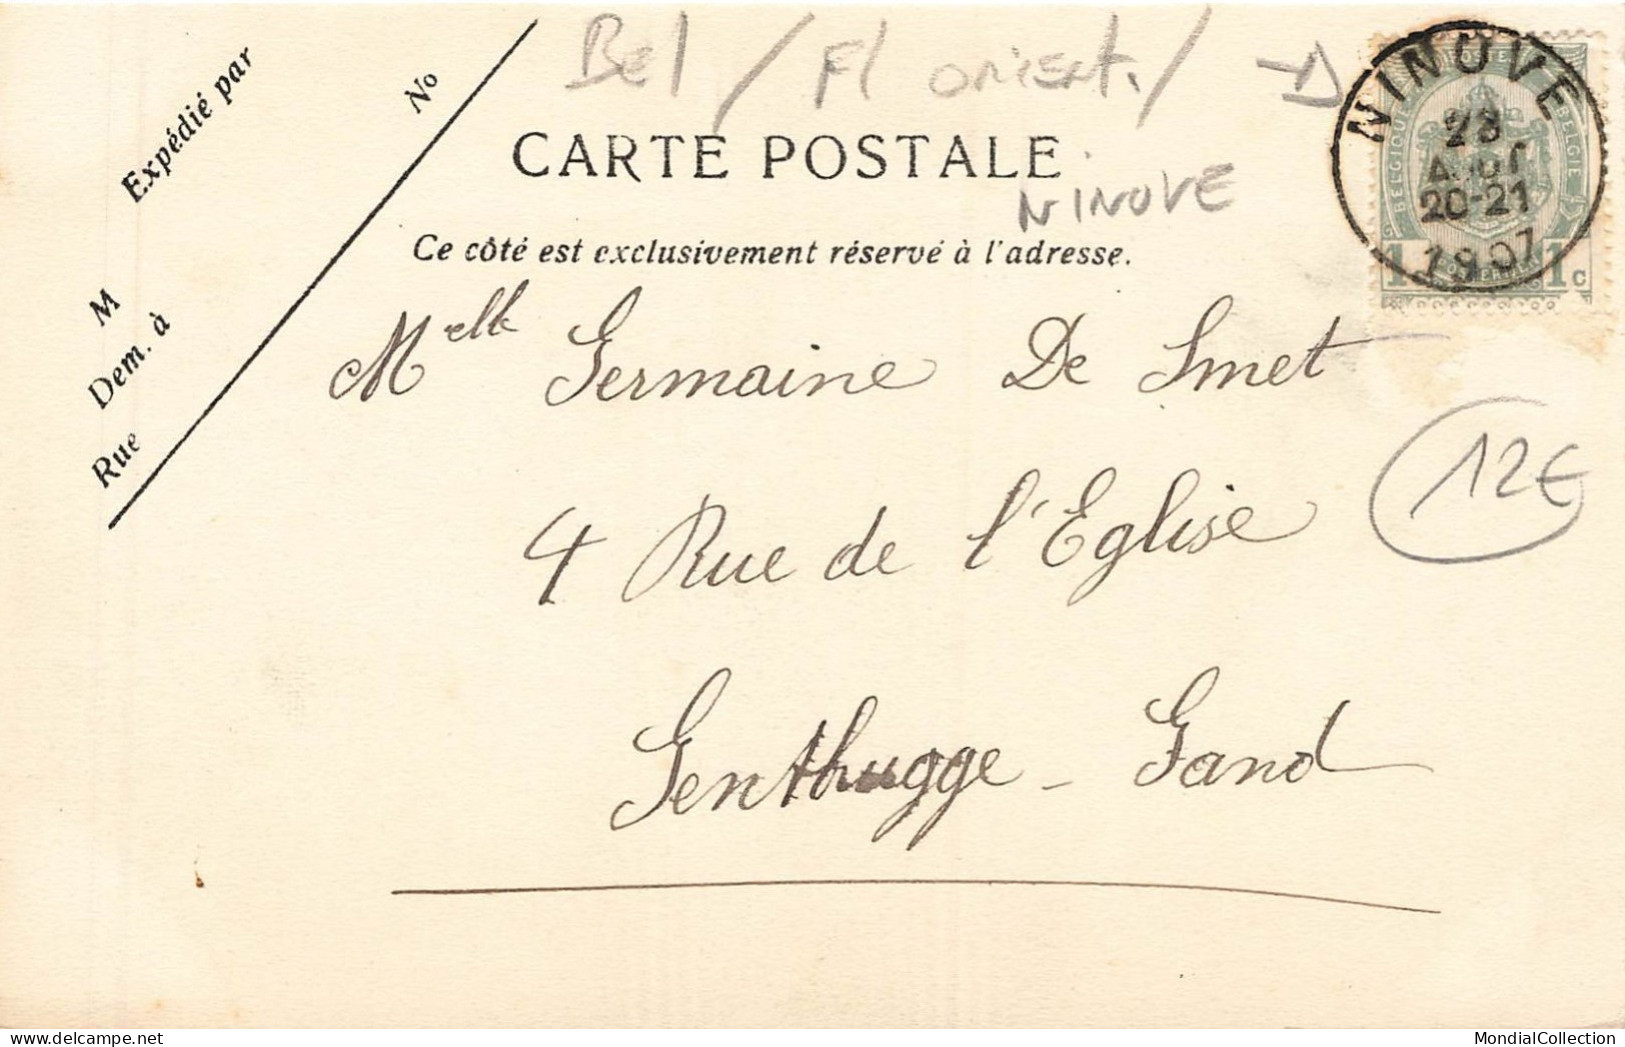 Bel / Fl orient. / → D
NINOVE
28
AOUT
20-21
1907
BELGIQUE
BELGIE
1 1 C
Expédié par
No
M
Dem. à
Rue
CARTE POSTALE
NINOVE
Ce côté est exclusivement réservé à l'adresse.
Melle Germaine De Smet
12€
4 Rue de l'Eglise
Genthugge - Gand
MondialCollection